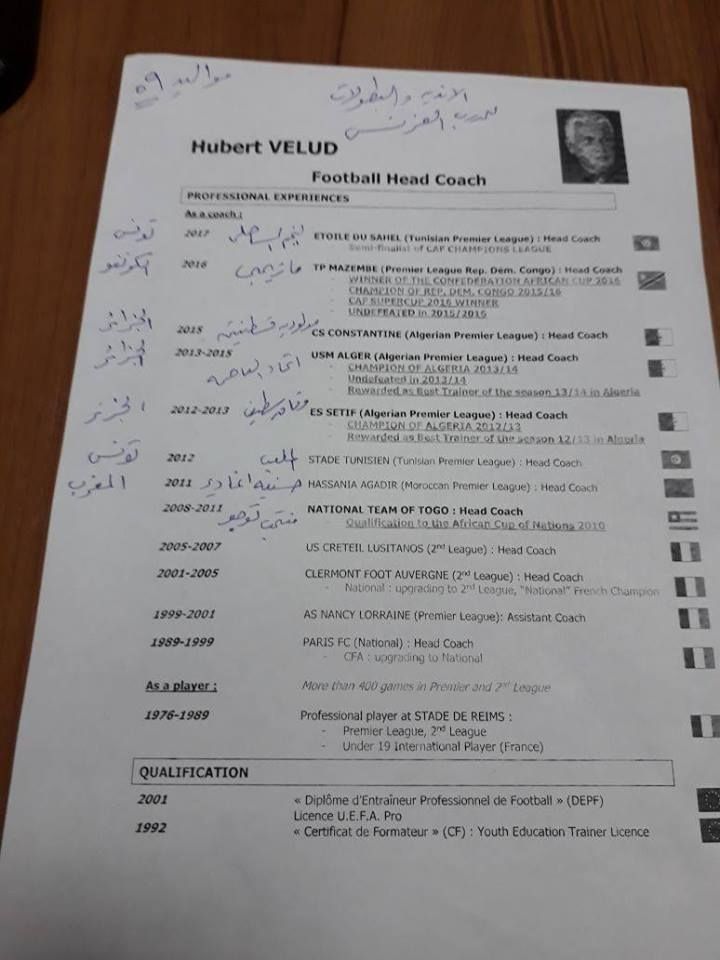 مواليد ٥٩
الاندية والبطولات
للمدرب الفرنسى
Hubert VELUD
Football Head Coach
PROFESSIONAL EXPERIENCES
As a coach :
تونس 2017 نجم الساحلى ETOILE DU SAHEL (Tunisian Premier League) : Head Coach
Semi-finalist of CAF CHAMPIONS LEAGUE
الكونغو 2016 مازيمبى TP MAZEMBE (Premier League Rep. Dem. Congo) : Head Coach
- WINNER OF THE CONFEDERATION AFRICAN CUP 2016
- CHAMPION OF REP. DEM. CONGO 2015/16
- CAF SUPERCUP 2016 WINNER
- UNDEFEATED in 2015/2016
الجزائر 2015 مولودية قسنطينة CS CONSTANTINE (Algerian Premier League) : Head Coach
الجزائر 2013-2015 اتحاد العاصمة USM ALGER (Algerian Premier League) : Head Coach
- CHAMPION OF ALGERIA 2013/14
- Undefeated in 2013/14
- Rewarded as Best Trainer of the season 13/14 in Algeria
الجزائر 2012-2013 ES SETIF (Algerian Premier League) : Head Coach
- CHAMPION OF ALGERIA 2012/13
- Rewarded as Best Trainer of the season 12/13 in Algeria
تونس 2012 الملعب STADE TUNISIEN (Tunisian Premier League) : Head Coach
المغرب 2011 حسنية اغادير HASSANIA AGADIR (Moroccan Premier League) : Head Coach
2008-2011 منتخب توجو NATIONAL TEAM OF TOGO : Head Coach
- Qualification to the African Cup of Nations 2010
2005-2007 US CRETEIL LUSITANOS (2nd League) : Head Coach
2001-2005 CLERMONT FOOT AUVERGNE (2nd League) : Head Coach
- National : upgrading to 2nd League, "National" French Champion
1999-2001 AS NANCY LORRAINE (Premier League): Assistant Coach
1989-1999 PARIS FC (National) : Head Coach
- CFA : upgrading to National
As a player : More than 400 games in Premier and 2nd League
1976-1989 Professional player at STADE DE REIMS :
- Premier League, 2nd League
- Under 19 International Player (France)
QUALIFICATION
2001 « Diplôme d'Entraîneur Professionnel de Football » (DEPF)
Licence U.E.F.A. Pro
1992 « Certificat de Formateur » (CF) : Youth Education Trainer Licence